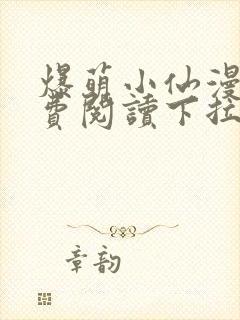 爆萌小仙漫
費閱讀下拉
章韵